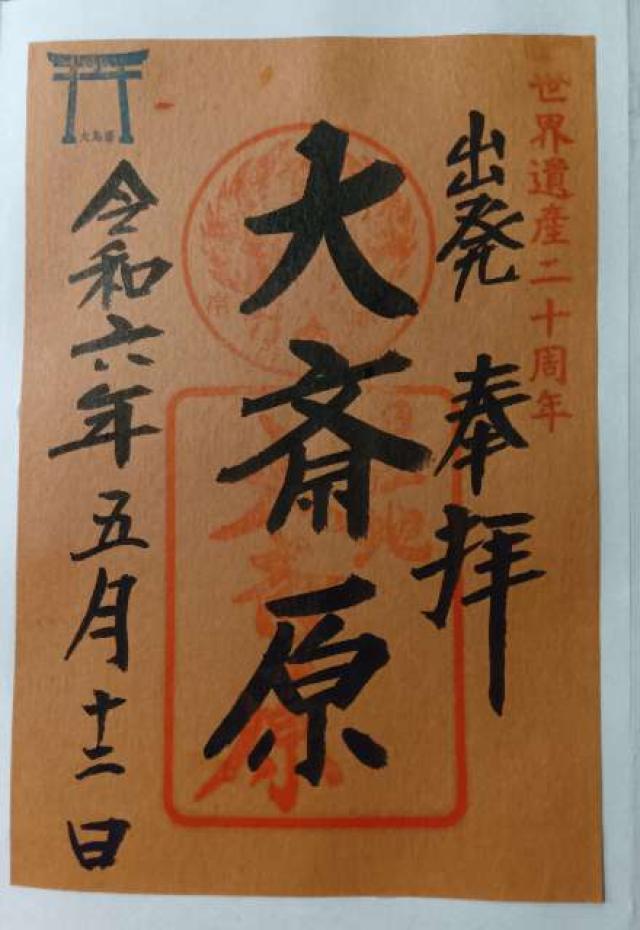 世界遺産二十周年
出発 奉拝
大斎原
令和六年五月十二日
大鳥居